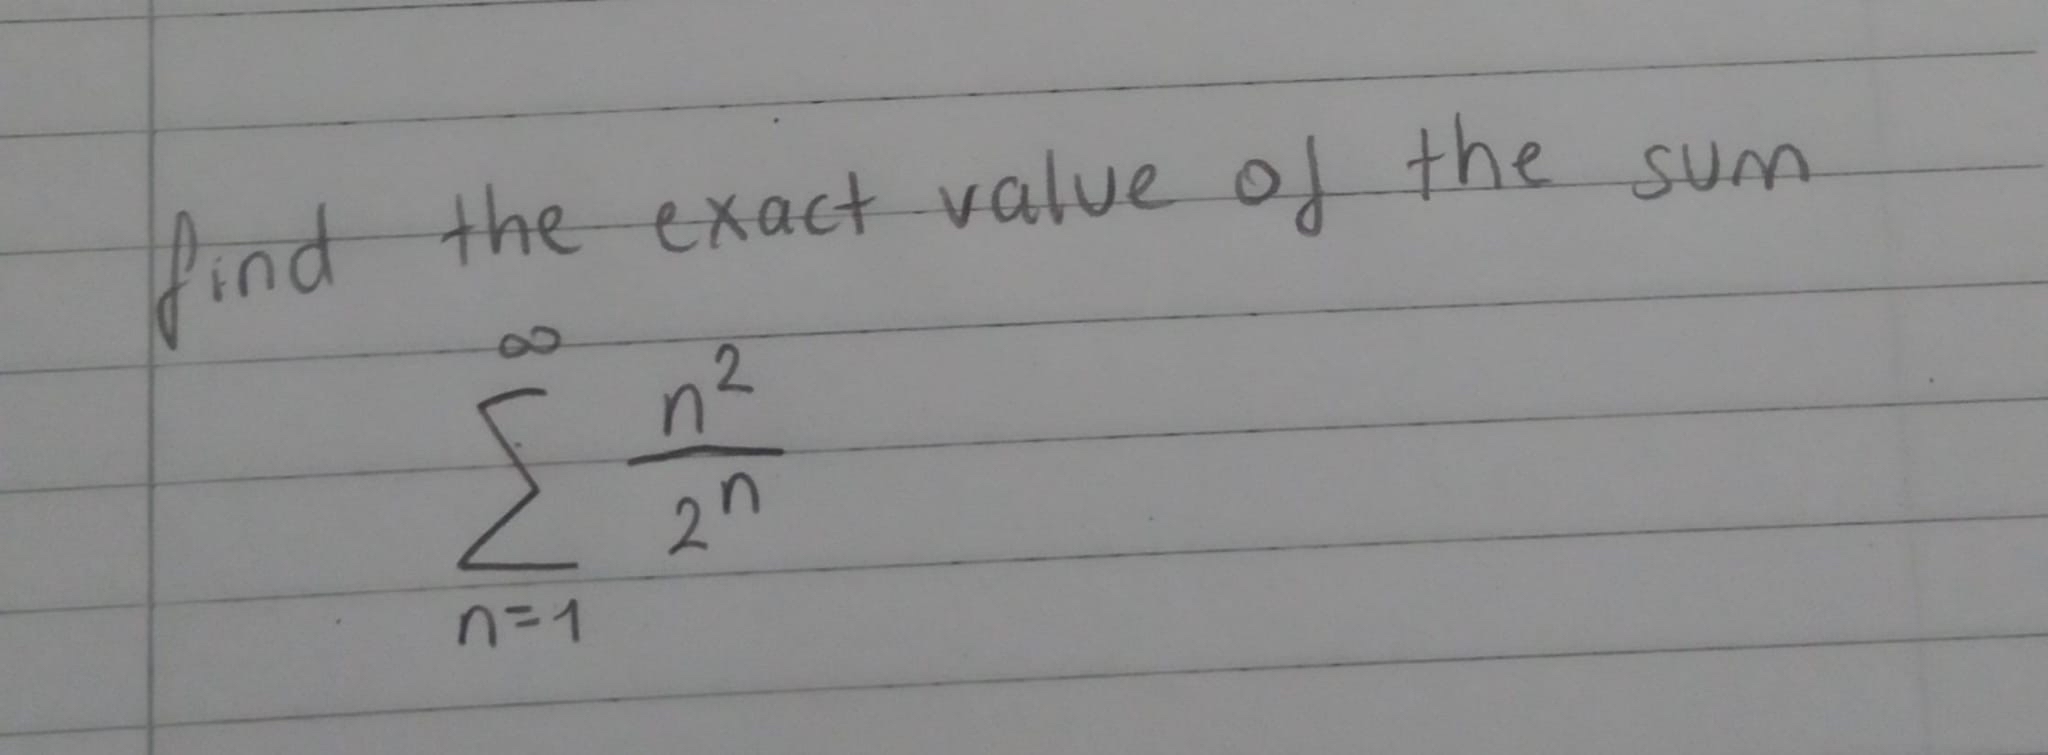 find the exact value of the sum
∞
∑ n²/2ⁿ
n=1